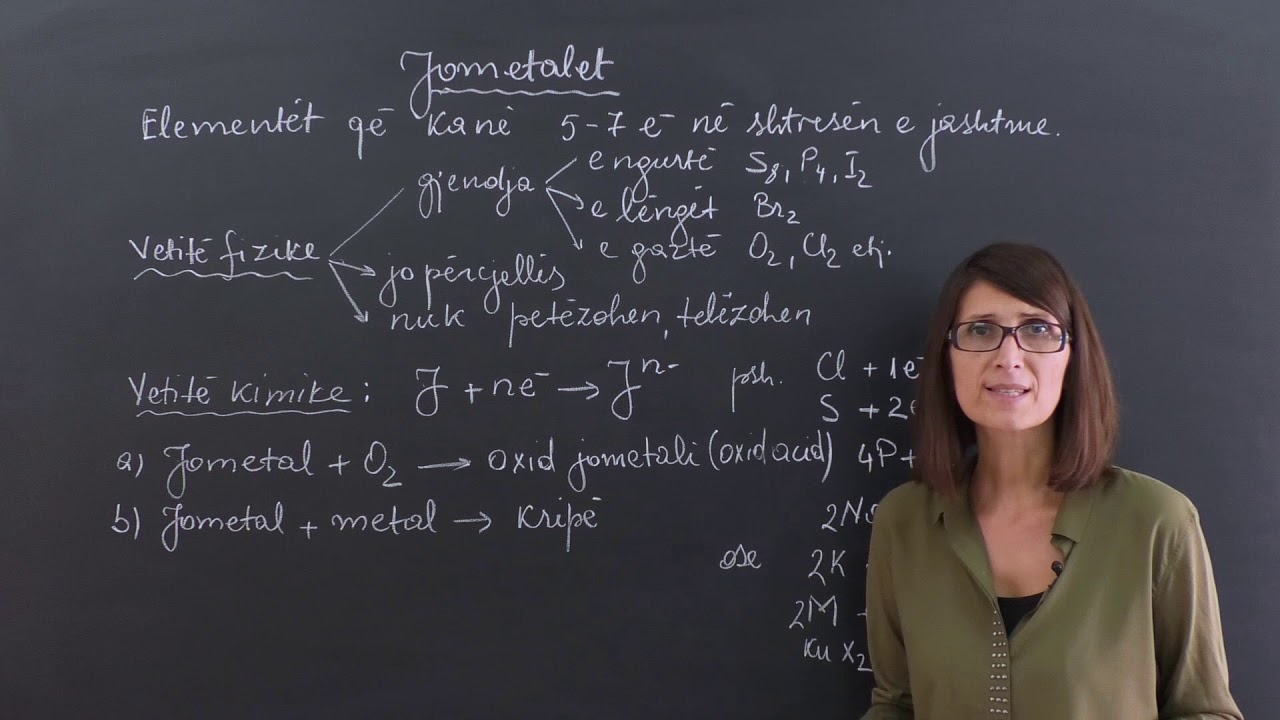 Jometalet
Elementët që kanë 5-7 e⁻ në shtresën e jashtme.
Vetitë fizike
gjendja
e ngurtë S₈, P₄, I₂
e lëngët Br₂
e gaztë O₂, Cl₂ etj.
jo përcjellës
nuk petëzohen, telëzohen
Vetitë kimike: J + ne⁻ → Jⁿ⁻ psh. Cl + 1e⁻
S + 2e
a) Jometal + O₂ → oxid jometali (oxid acid) 4P +
b) Jometal + metal → kripë
2N
ose 2K
2M
ku X₂